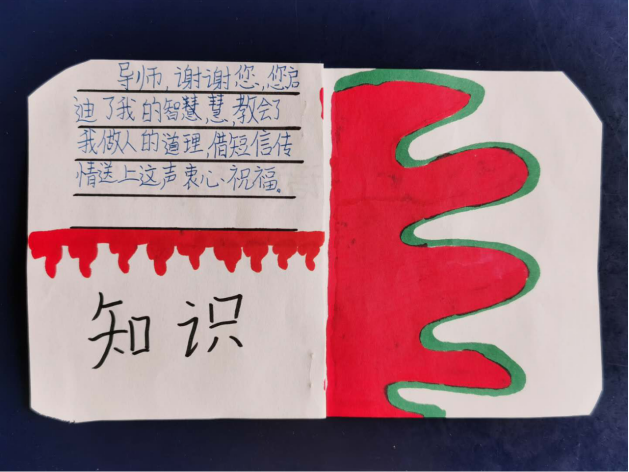 导师,谢谢您,您启
迪了我的智慧,慧,教会了
我做人的道理,借短信传
情送上这声衷心祝福。
知识